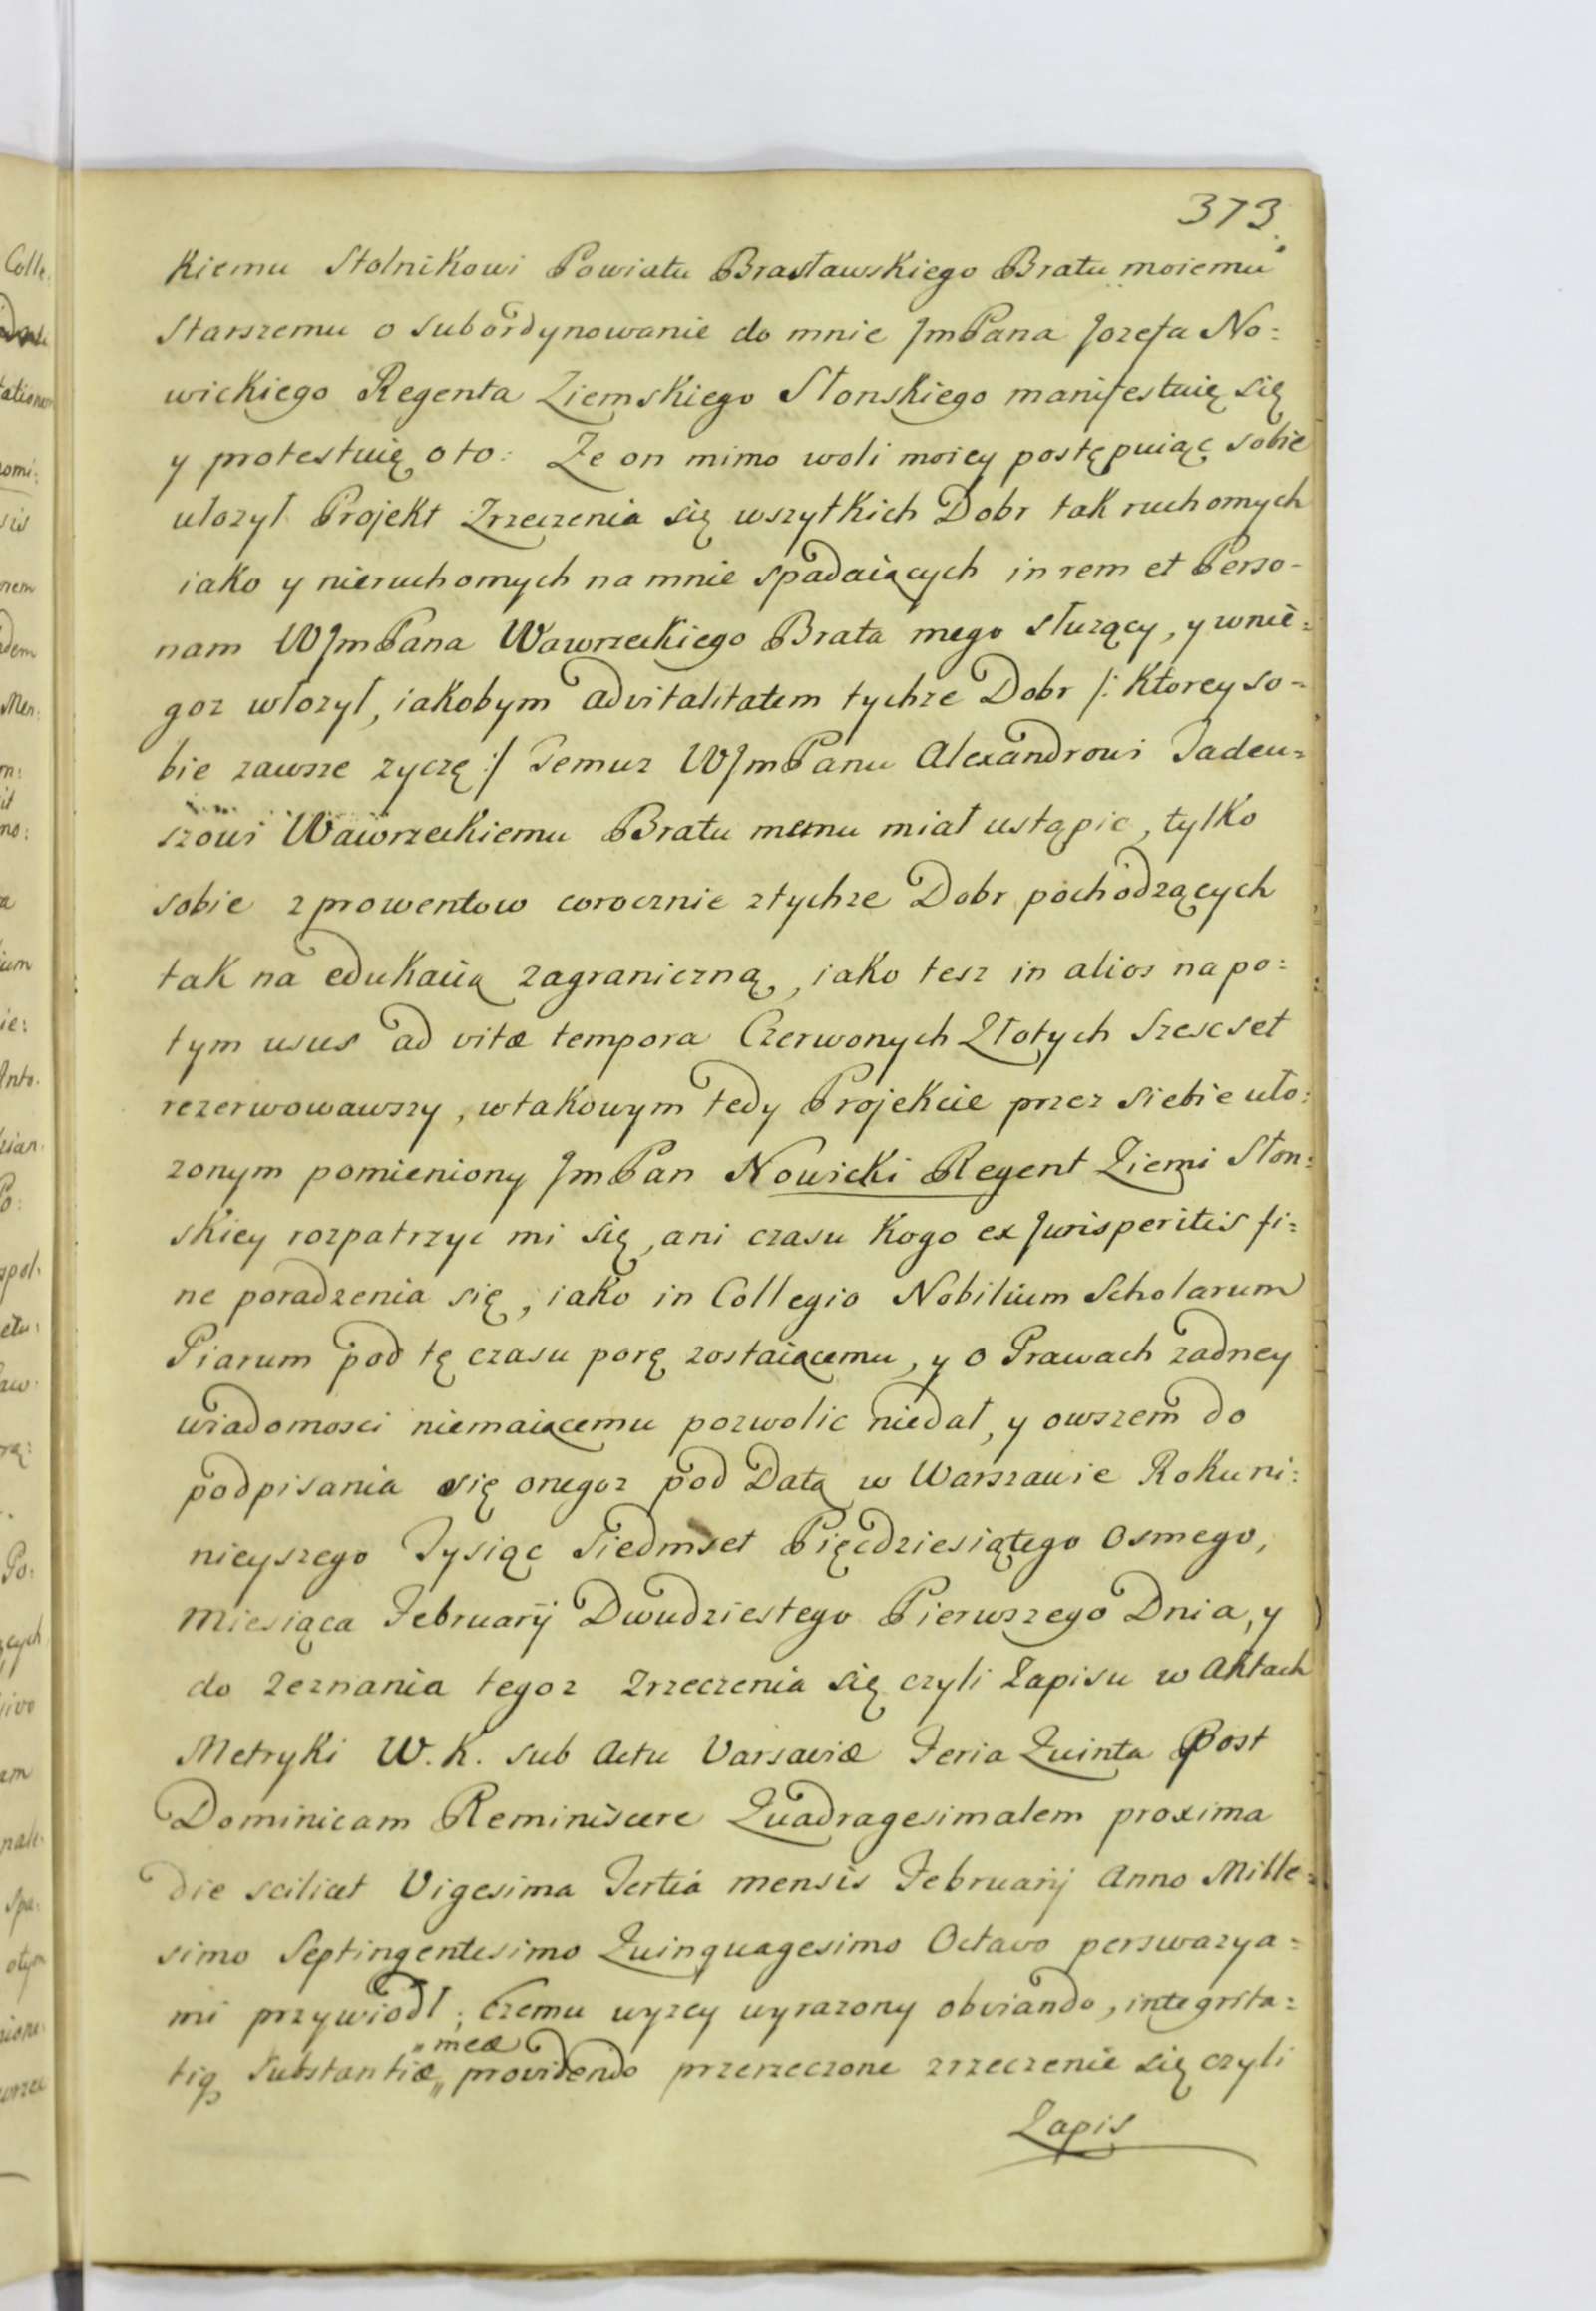 373.
kiemu Stolnikowi Powiatu Brasławskiego Bratu moiemu
Starszemu o subordynowanie do mnie JmPana Jozefa No=
wickiego Regenta Ziemskiego Słonskiego manifestuię się
y protestuię oto: Ze on mimo woli moiey postępuiąc sobie
ulozył Projekt Zrzeczenia się wszytkich Dobr tak ruchomych
iako y nieruchomych na mnie spadaiących in rem et Perso-
nam WJmPana Wawrzeckiego Brata mego słuzący, y wnie=
goz włozył, iakobym advitalitatem tychze Dobr /: Ktorey so=
bie zawsze zyczę :/ Temuz WJmPanu Alexandrowi Tadeu=
szowi Wawrzeckiemu Bratu memu miał ustąpic, tylko
sobie z prowentow corocznie ztychze Dobr pochodzących
tak na edukacią zagraniczną, iako tesz in alios na po=
tym usus ad vitæ tempora Czerwonych Złotych Szescset
rezerwowawszy, wtakowym tedy Projekcie przez siebie uło=
zonym pomieniony JmPan Nowicki Regent Ziemi Słon=
skiey rozpatrzyc mi się, ani czasu Kogo ex Jurisperitis fi=
ne poradzenia się, iako in Collegio Nobilium Scholarum
Piarum pod tę czasu porę zostaiącemu, y o Prawach zadney
wiadomosci niemaiącemu pozwolic niedał, y owszem do
podpisania się onegoz pod Datą w Warszawie Roku ni=
nieyszego Tysiąc Siedmset Pięcdziesiątego Osmego,
Miesiąca Februarij Dwudziestego Pierwszego Dnia, y
do zeznania tegoz Zrzeczenia się czyli Zapisu w Aktach
Metryki W. K. sub Actu Varsaviæ Feria Quinta Post
Dominicam Reminiscere Quadragesimalem proxima
die scilicet Vigesima Tertia mensis Februarij Anno Mille=
simo Septingentesimo Quinquagesimo Octavo perswazya=
mi przywiodł; Czemu wyzey wyrazony obviando, integrita=
„meæ
tiq substantiæ„ providendo przerzeczone zrzeczenie się czyli
Zapis